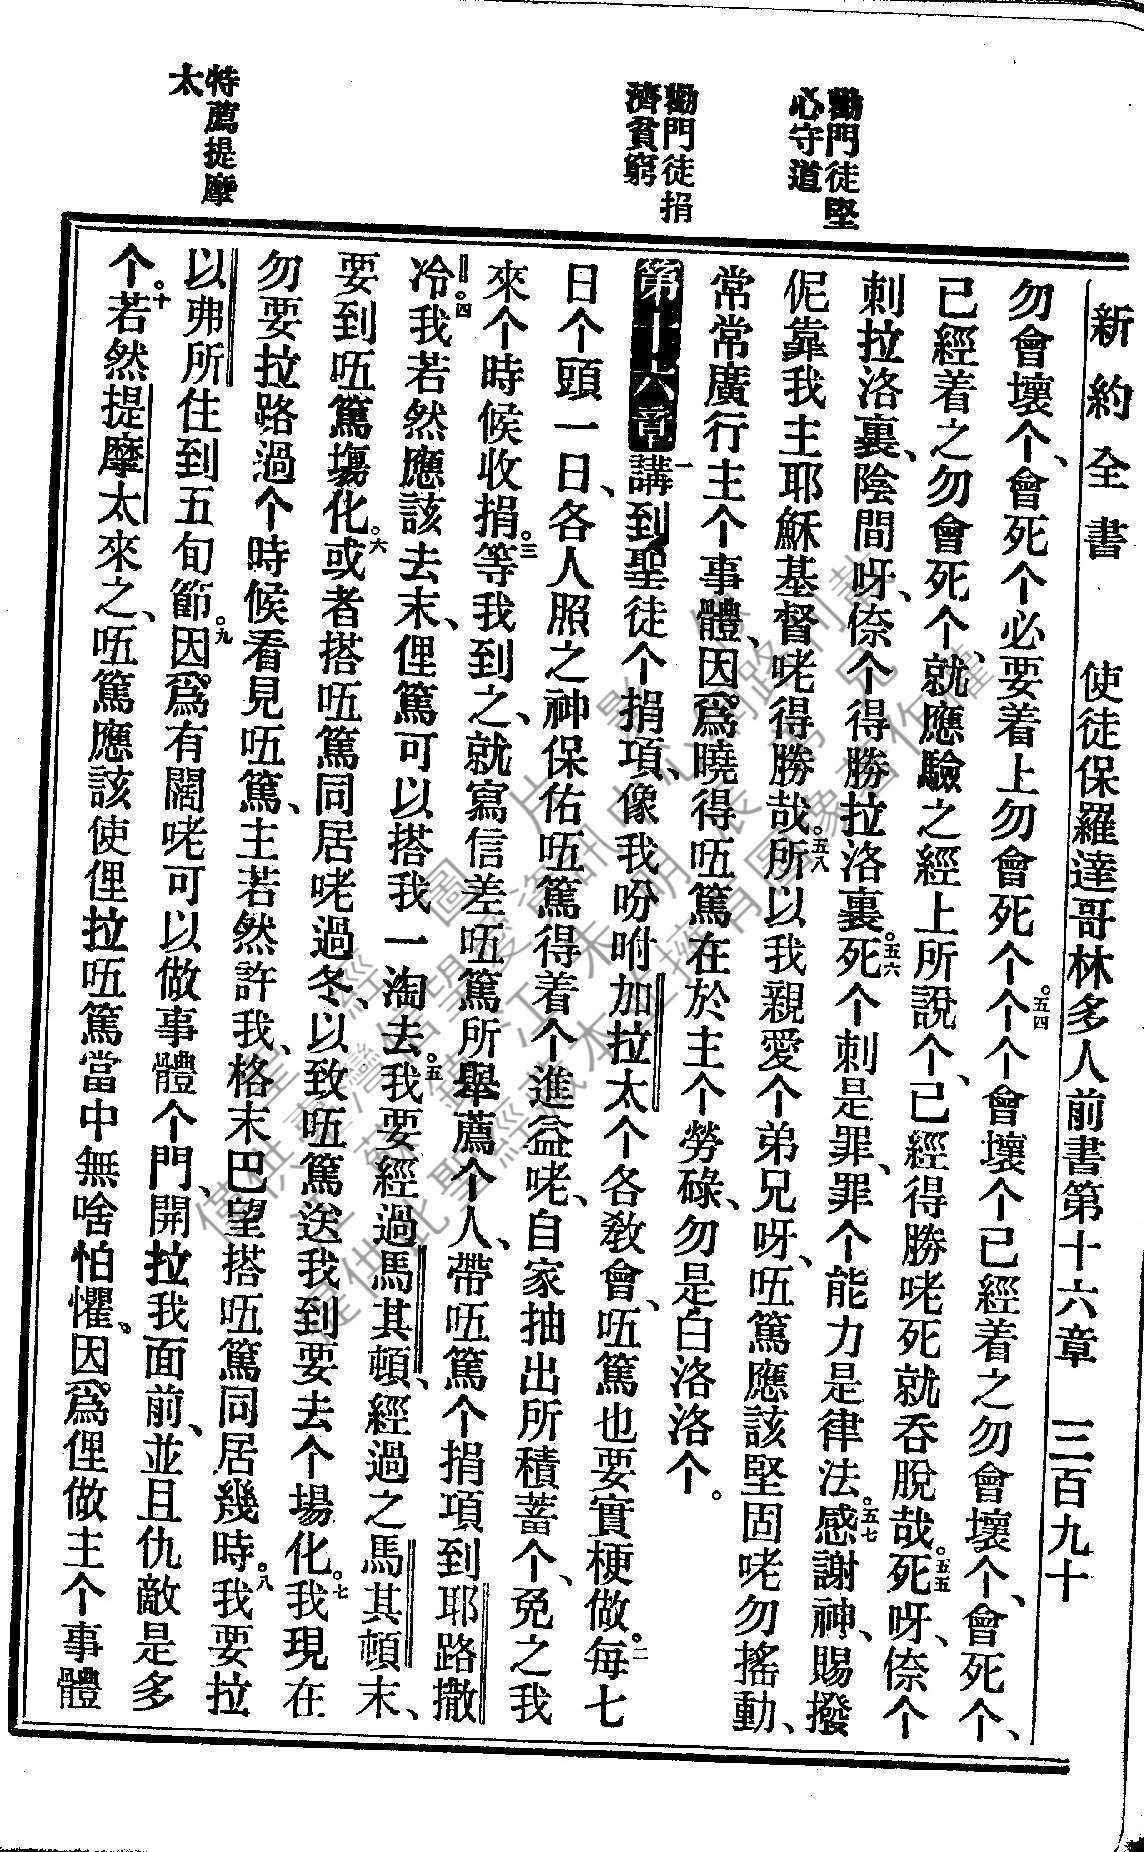 新約全書　使徒保羅達哥林多人前書第十六章　三百九十
勸門徒堅
心守道
勸門徒捐
濟貧窮
特薦提摩
太
勿會壞个、會死个必要着上勿會死个。五四个个會壞个已經着之勿會壞个、會死个、
已經着之勿會死个、就應驗之經上所說个、已經得勝咾死就吞脫哉。五五死呀、倷个
刺拉洛裏、陰間呀、倷个得勝拉洛裏。五六死个刺是罪、罪个能力是律法。五七感謝神、賜撥
伲靠我主耶穌基督咾得勝哉。五八所以我親愛个弟兄呀、㕶篤應該堅固咾勿搖動、
常常廣行主个事體、因爲曉得㕶篤在於主个勞碌、勿是白洛洛个。
第十六章一講到聖徒个捐項、像我吩咐加拉太个各敎會、㕶篤也要實梗做。二每七
日个頭一日、各人照之神保佑㕶篤得着个進益咾、自家抽出所積蓄个、免之我
來个時候收捐。三等我到之、就寫信差㕶篤所舉薦个人、帶㕶篤个捐項到耶路撒
冷。四我若然應該去末、俚篤可以搭我一淘去。五我要經過馬其頓、經過之馬其頓末、
要到㕶篤塲化。六或者搭㕶篤同居咾過冬、以致㕶篤送我到要去个場化。七我現在
勿要拉路過个時候看見㕶篤、主若然許我、格末巴望搭㕶篤同居幾時。八我要拉
以弗所住到五旬節。九因爲有闊咾可以做事體个門、開拉我面前、並且仇敵是多
个。十若然提摩太來之、㕶篤應該使俚拉㕶篤當中無啥怕懼。因爲俚做主个事體